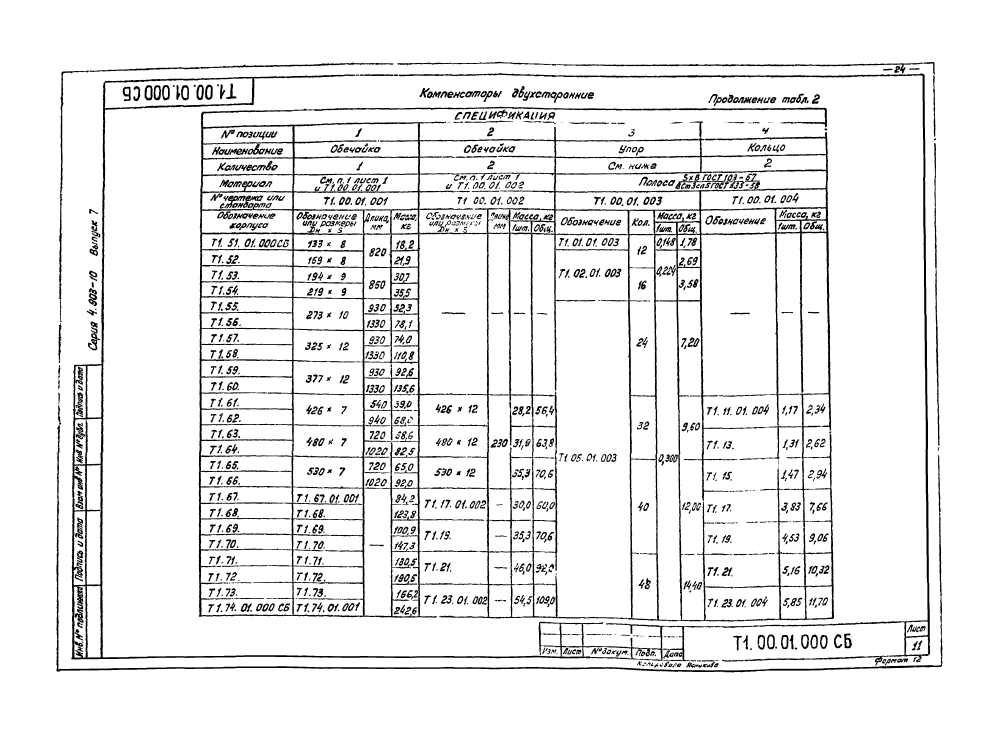 — 24 —
Т1.00.01.000 СБ
Компенсаторы двухсторонние
Продолжение табл. 2
Серия 4.903-10 Выпуск 7
СПЕЦИФИКАЦИЯ
№ позиции 1 2 3 4
Наименование Обечайка Обечайка Упор Кольцо
Количество 1 2 См. ниже 2
Материал См. п. 1 лист 1 и Т1.00.01.001 См. п. 1 лист 1 и Т1.00.01.002 Полоса 5х8 ГОСТ 103-57 / ВСт3сп5 ГОСТ 535-58
№ чертежа или стандарта Т1.00.01.001 Т1.00.01.002 Т1.00.01.003 Т1.00.01.004
Обозначение корпуса Обозначение или размеры Dн х S Длина, мм Масса, кг Обозначение или размеры Dн х S Длина мм Масса, кг 1шт. Общ. Обозначение Кол. Масса, кг 1шт. Общ. Обозначение Масса, кг 1шт. Общ.
Т1. 51. 01. 000 СБ 133 × 8 820 18,2 — — — Т1. 01. 01. 003 12 0,148 1,78 — — —
Т1. 52. 159 × 8 21,9 Т1. 02. 01. 003 0,224 2,69
Т1. 53. 194 × 9 850 30,7
Т1. 54. 219 × 9 35,5 16 3,58
Т1. 55. 273 × 10 930 52,3
Т1. 56. 1330 78,1
Т1. 57. 325 × 12 930 74,0 24 7,20
Т1. 58. 1330 110,8
Т1. 59. 377 × 12 930 92,6
Т1. 60. 1330 135,6
Т1. 61. 426 × 7 540 39,0 426 × 12 230 28,2 56,4 Т1. 05. 01. 003 32 0,300 9,60 Т1. 11. 01. 004 1,17 2,34
Т1. 62. 940 68,0
Т1. 63. 480 × 7 720 58,6 480 × 12 31,9 63,8 Т1. 13. 1,31 2,62
Т1. 64. 1020 82,5
Т1. 65. 530 × 7 720 65,0 530 × 12 35,3 70,6 Т1. 15. 1,47 2,94
Т1. 66. 1020 92,0
Т1. 67. Т1. 67. 01. 001 — 84,2 Т1. 17. 01. 002 — 30,0 60,0 40 12,00 Т1. 17. 3,83 7,66
Т1. 68. Т1. 68. 123,8
Т1. 69. Т1. 69. 100,9 Т1. 19. — 35,3 70,6 Т1. 19. 4,53 9,06
Т1. 70. Т1. 70. 147,3
Т1. 71. Т1. 71. 130,5 Т1. 21. — 46,0 92,0 48 14,40 Т1. 21. 5,16 10,32
Т1. 72. Т1. 72. 190,5
Т1. 73. Т1. 73. 166,2 Т1. 23. 01. 002 — 54,5 109,0 Т1. 23. 01. 004 5,85 11,70
Т1. 74. 01. 000 СБ Т1. 74. 01. 001 242,6
Инв. № подлинника Подпись и дата Взам инв № Инв № дубл. Подпись и дата
Изм. Лист № докум. Подп. Дата
Т1.00.01.000 СБ
Лист
11
Копировала
Формат 12